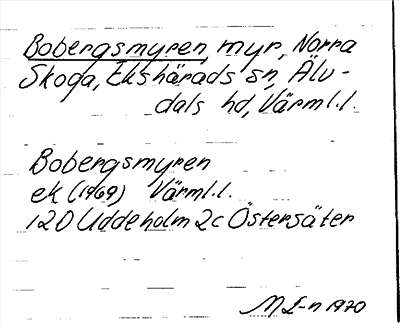 Bobergsmyren, myr, Norra
Skoga, Ekshärads sn, Älv-
dals hd, Värml.l.
Bobergsmyren
ek (1969) Värml.l.
12D Uddeholm 2c Östersäter
M L-n 1970